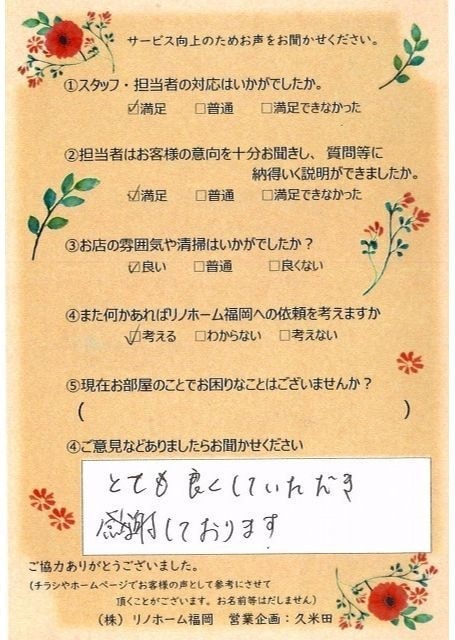 サービス向上のためお声をお聞かせください。
①スタッフ・担当者の対応はいかがでしたか。
☑満足 □普通 □満足できなかった
②担当者はお客様の意向を十分お聞きし、質問等に
納得いく説明ができましたか。
☑満足 □普通 □満足できなかった
③お店の雰囲気や清掃はいかがでしたか？
☑良い □普通 □良くない
④また何かあればリノホーム福岡への依頼を考えますか
☑考える □わからない □考えない
⑤現在お部屋のことでお困りなことはございませんか？
( )
④ご意見などありましたらお聞かせください
とても良くしていただき
感謝しております
ご協力ありがとうございました。
(チラシやホームページでお客様の声として参考にさせて
頂くことがございます。お名前等はだしません)
(株) リノホーム福岡 営業企画：久米田